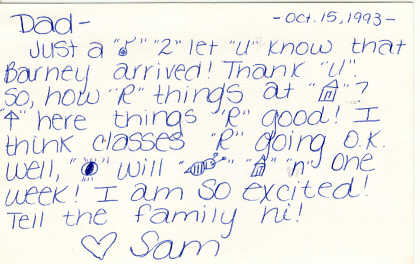 Dad- -Oct. 15, 1993-
Just a "♪" "2" let "U" know that
Barney arrived! Thank "U".
So, how "R" things at "🏠"?
"↑" here things "R" good! I
think classes "R" going O.K.
Well, "👁" will "🐝" "🏠" "n" one
week! I am so excited!
Tell the family hi!
♡ Sam